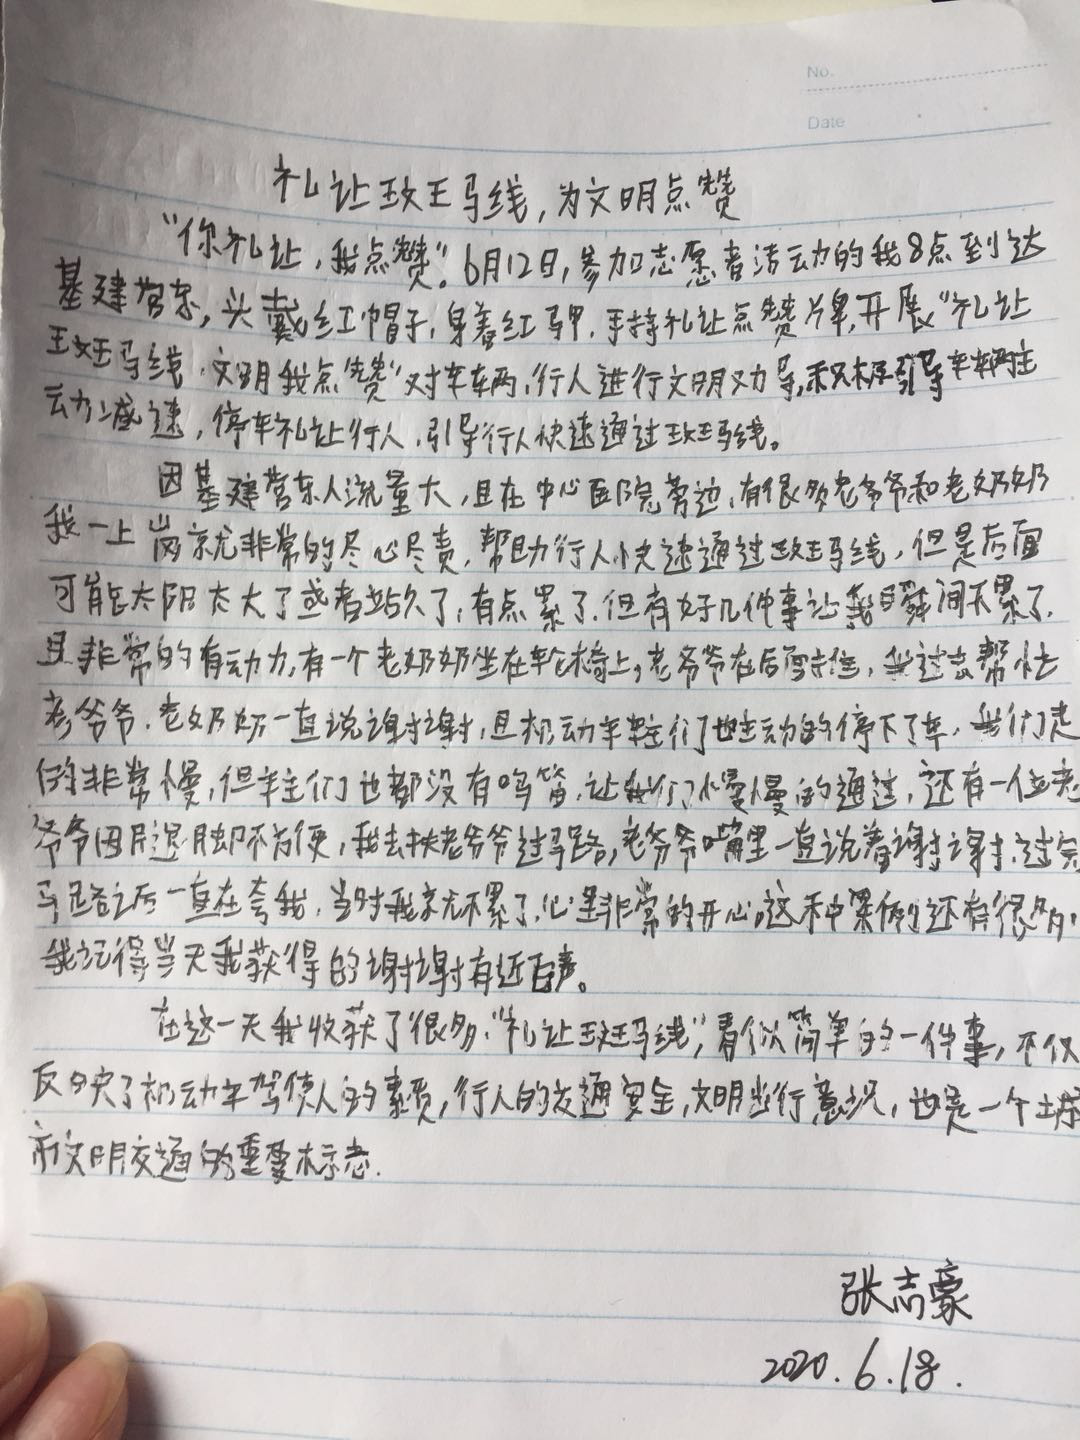 No.
Date
礼让斑马线，为文明点赞
“你礼让，我点赞”。6月12日，参加志愿者活动的我8点到达
基建营东，头戴红帽子，身着红马甲，手持礼让点赞牌，开展“礼让
斑马线，文明我点赞”对车辆，行人进行文明劝导，积极引导车辆主
动减速，停车礼让行人，引导行人快速通过斑马线。
因基建营东人流量大，且在中心医院旁边，有很多老爷爷和老奶奶
我一上岗就非常的尽心尽责，帮助行人快速通过斑马线，但是后面
可能太阳太大了或者站久了，有点累了，但有好几件事让我瞬间不累了，
且非常的有动力，有一个老奶奶坐在轮椅上，老爷爷在后面推，我过去帮忙
老爷爷，老奶奶一直说谢谢，且机动车车主们也主动的停下了车，我们走
的非常慢，但车主们也都没有鸣笛，让我们慢慢的通过，还有一位老
爷爷因月退脚不方便，我去扶老爷爷过马路，老爷爷嘴里一直说着谢谢，过完
马路之后一直在夸我，当时我就不累了，心里非常的开心。这种案例还有很多，
我记得当天我获得的谢谢有近百声。
在这一天我收获了很多，“礼让斑马线”，看似简单的一件事，不仅
反映了机动车驾使人的素质，行人的交通安全，文明出行意识，也是一个城
市文明交通的重要标志.
张志豪
2020.6.18.